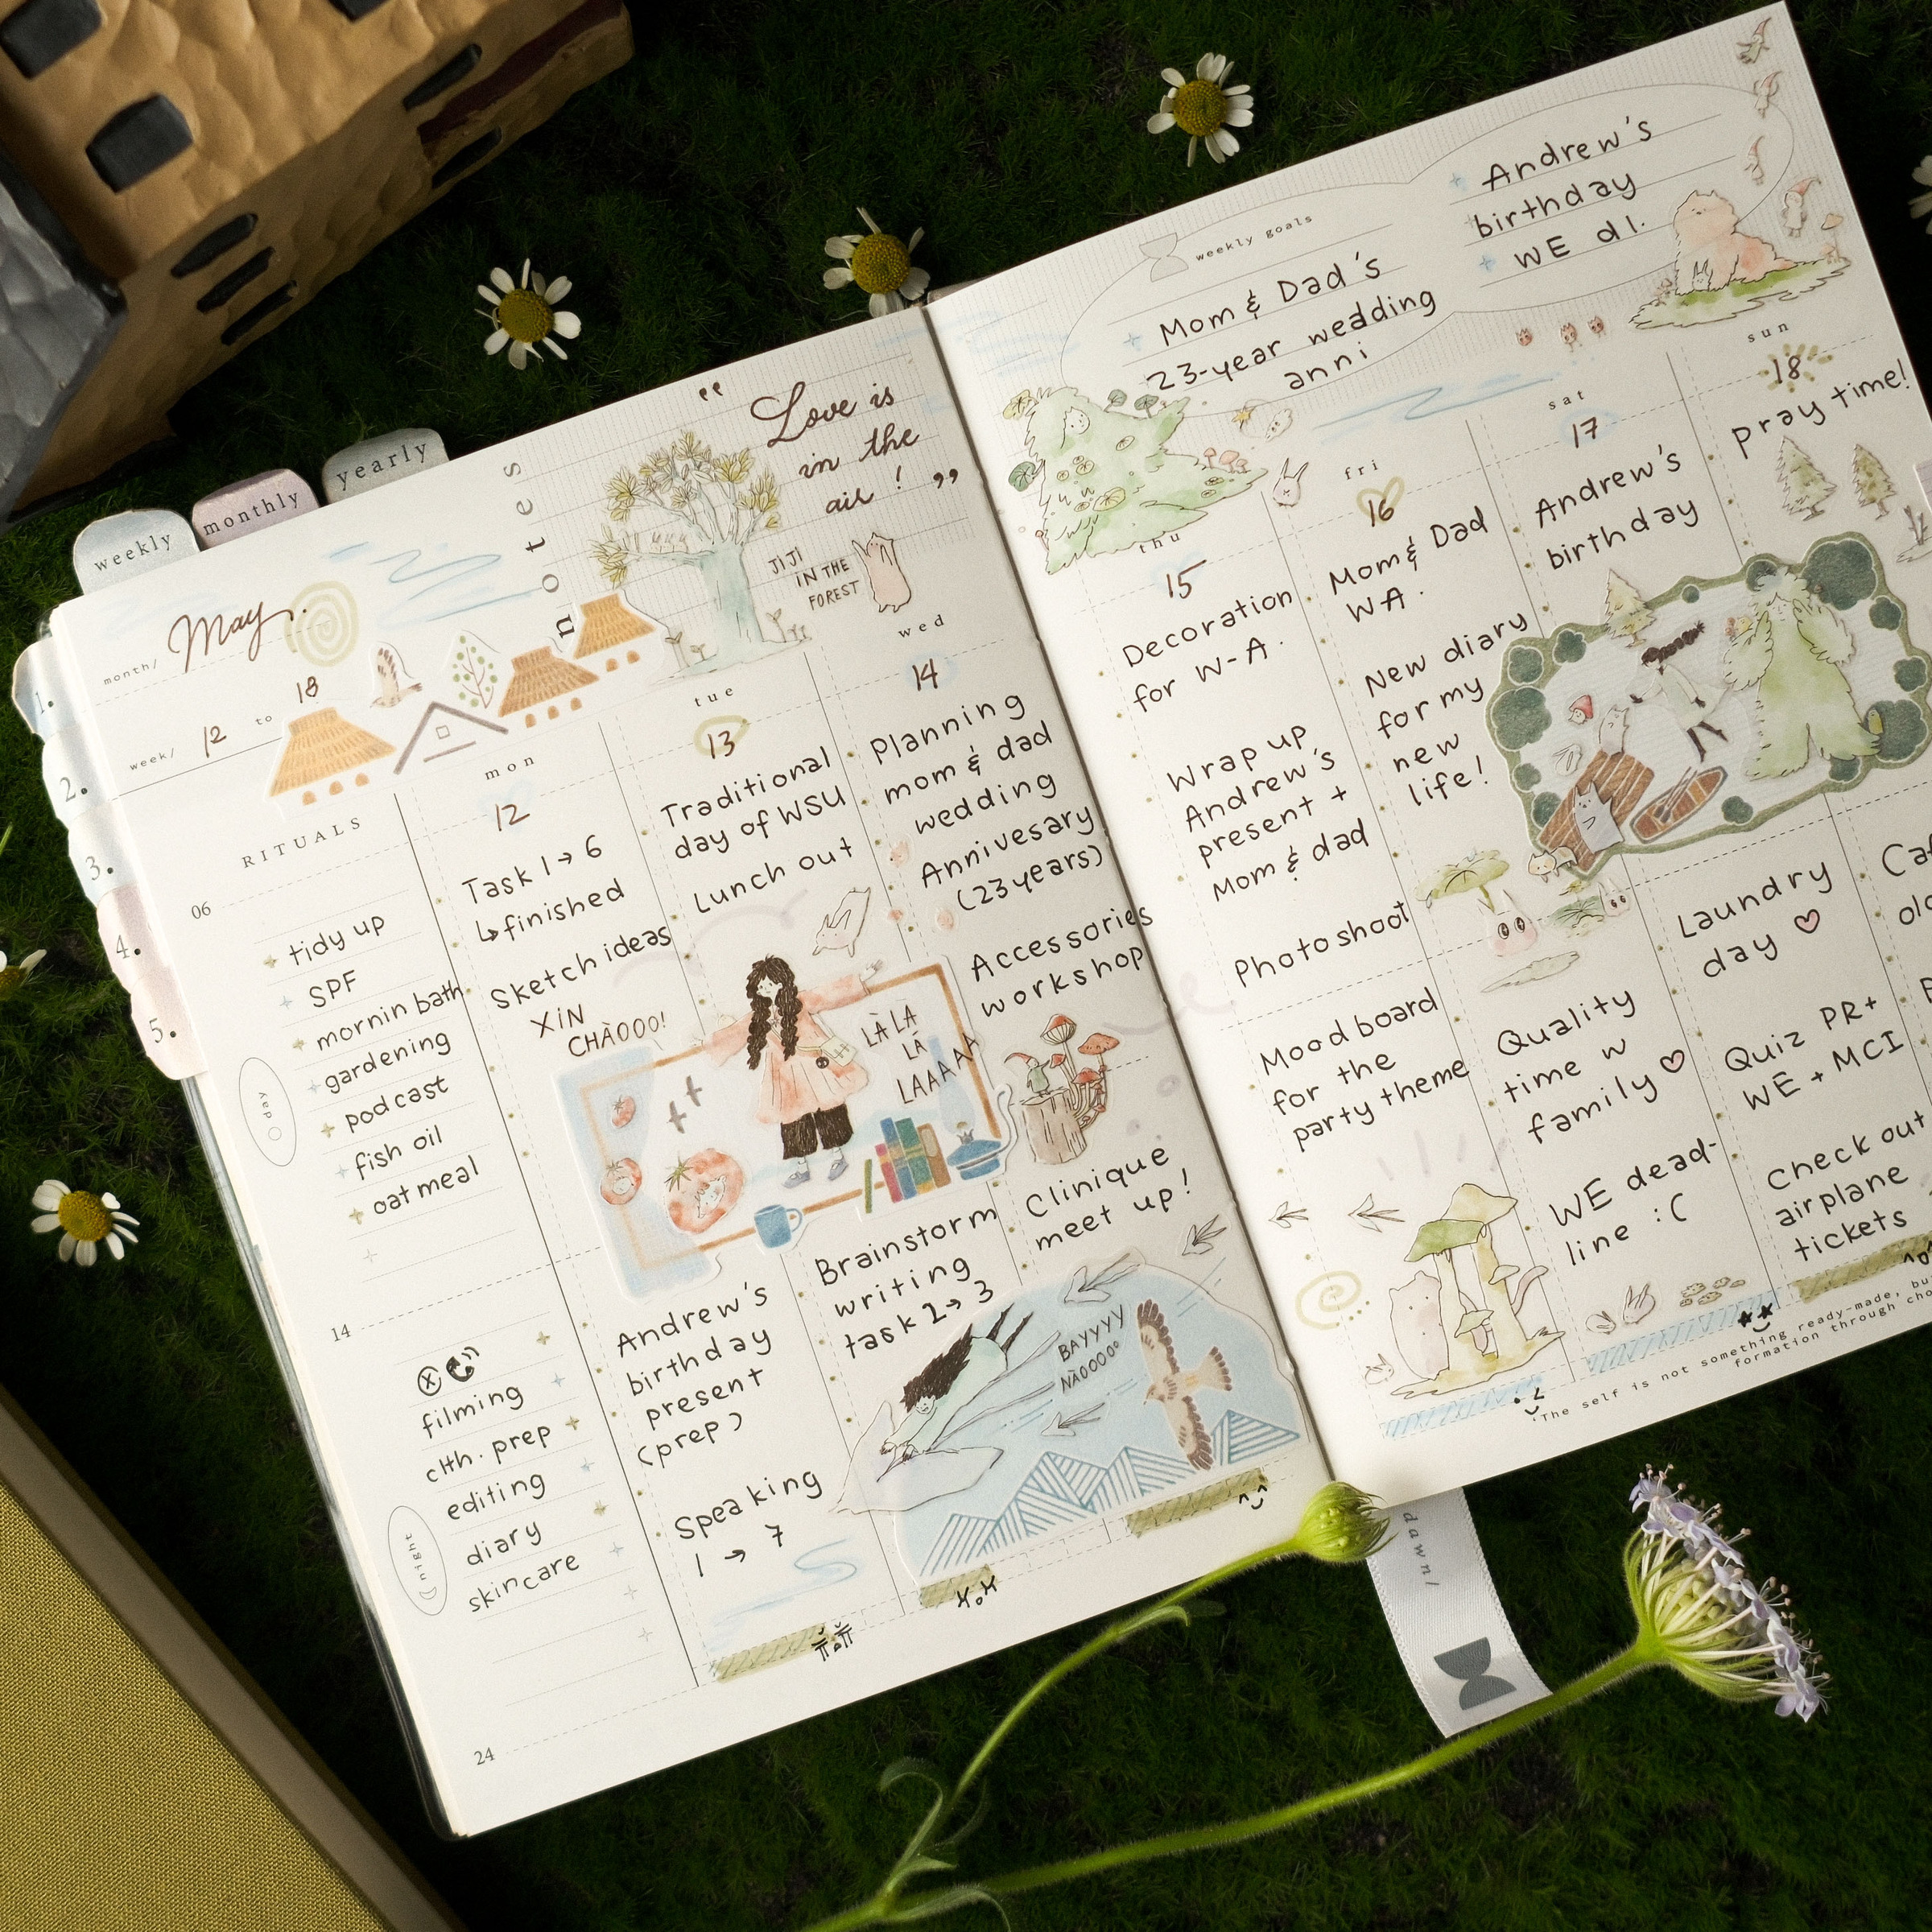 weekly
monthly
yearly
1.
2.
3.
4.
5.
month/ May.
week/ 12 to 18
notes
“ Love is
in the
air ! ”
JIJI
IN THE
FOREST
RITUALS
06
tidy up
SPF
mornin bath
gardening
podcast
fish oil
oat meal
day
14
filming
clth. prep
editing
diary
skincare
night
24
mon
12
Task 1→6
↳finished
Sketch ideas
XIN
CHÀOOO!
Andrew's
birthday
present
(prep)
Speaking
1 → 7
tue
13
Traditional
day of WSU
Lunch out
LÀ LA
LÁ
LAAAAA
Brainstorm
writing
task 2→3
wed
14
Planning
mom & dad
wedding
Annivesary
(23years)
Accessories
workshop
Clinique
meet up!
BAYYYY
NÀOOOO
weekly goals
Mom & Dad's
23-year wedding
anni
Andrew's
birthday
WE dl.
thu
15
Decoration
for W-A.
Wrap up
Andrew's
present +
Mom & dad
Photoshoot
Mood board
for the
party theme
fri
16
Mom & Dad
WA.
New diary
for my
new
life!
Quality
time w
family
WE dead-
line :(
sat
17
Andrew's
birthday
Laundry
day
Quiz PR+
WE + MCI
Check out
airplane
tickets
sun
18
pray time!
"The self is not something ready-made,
formation through
dawn/